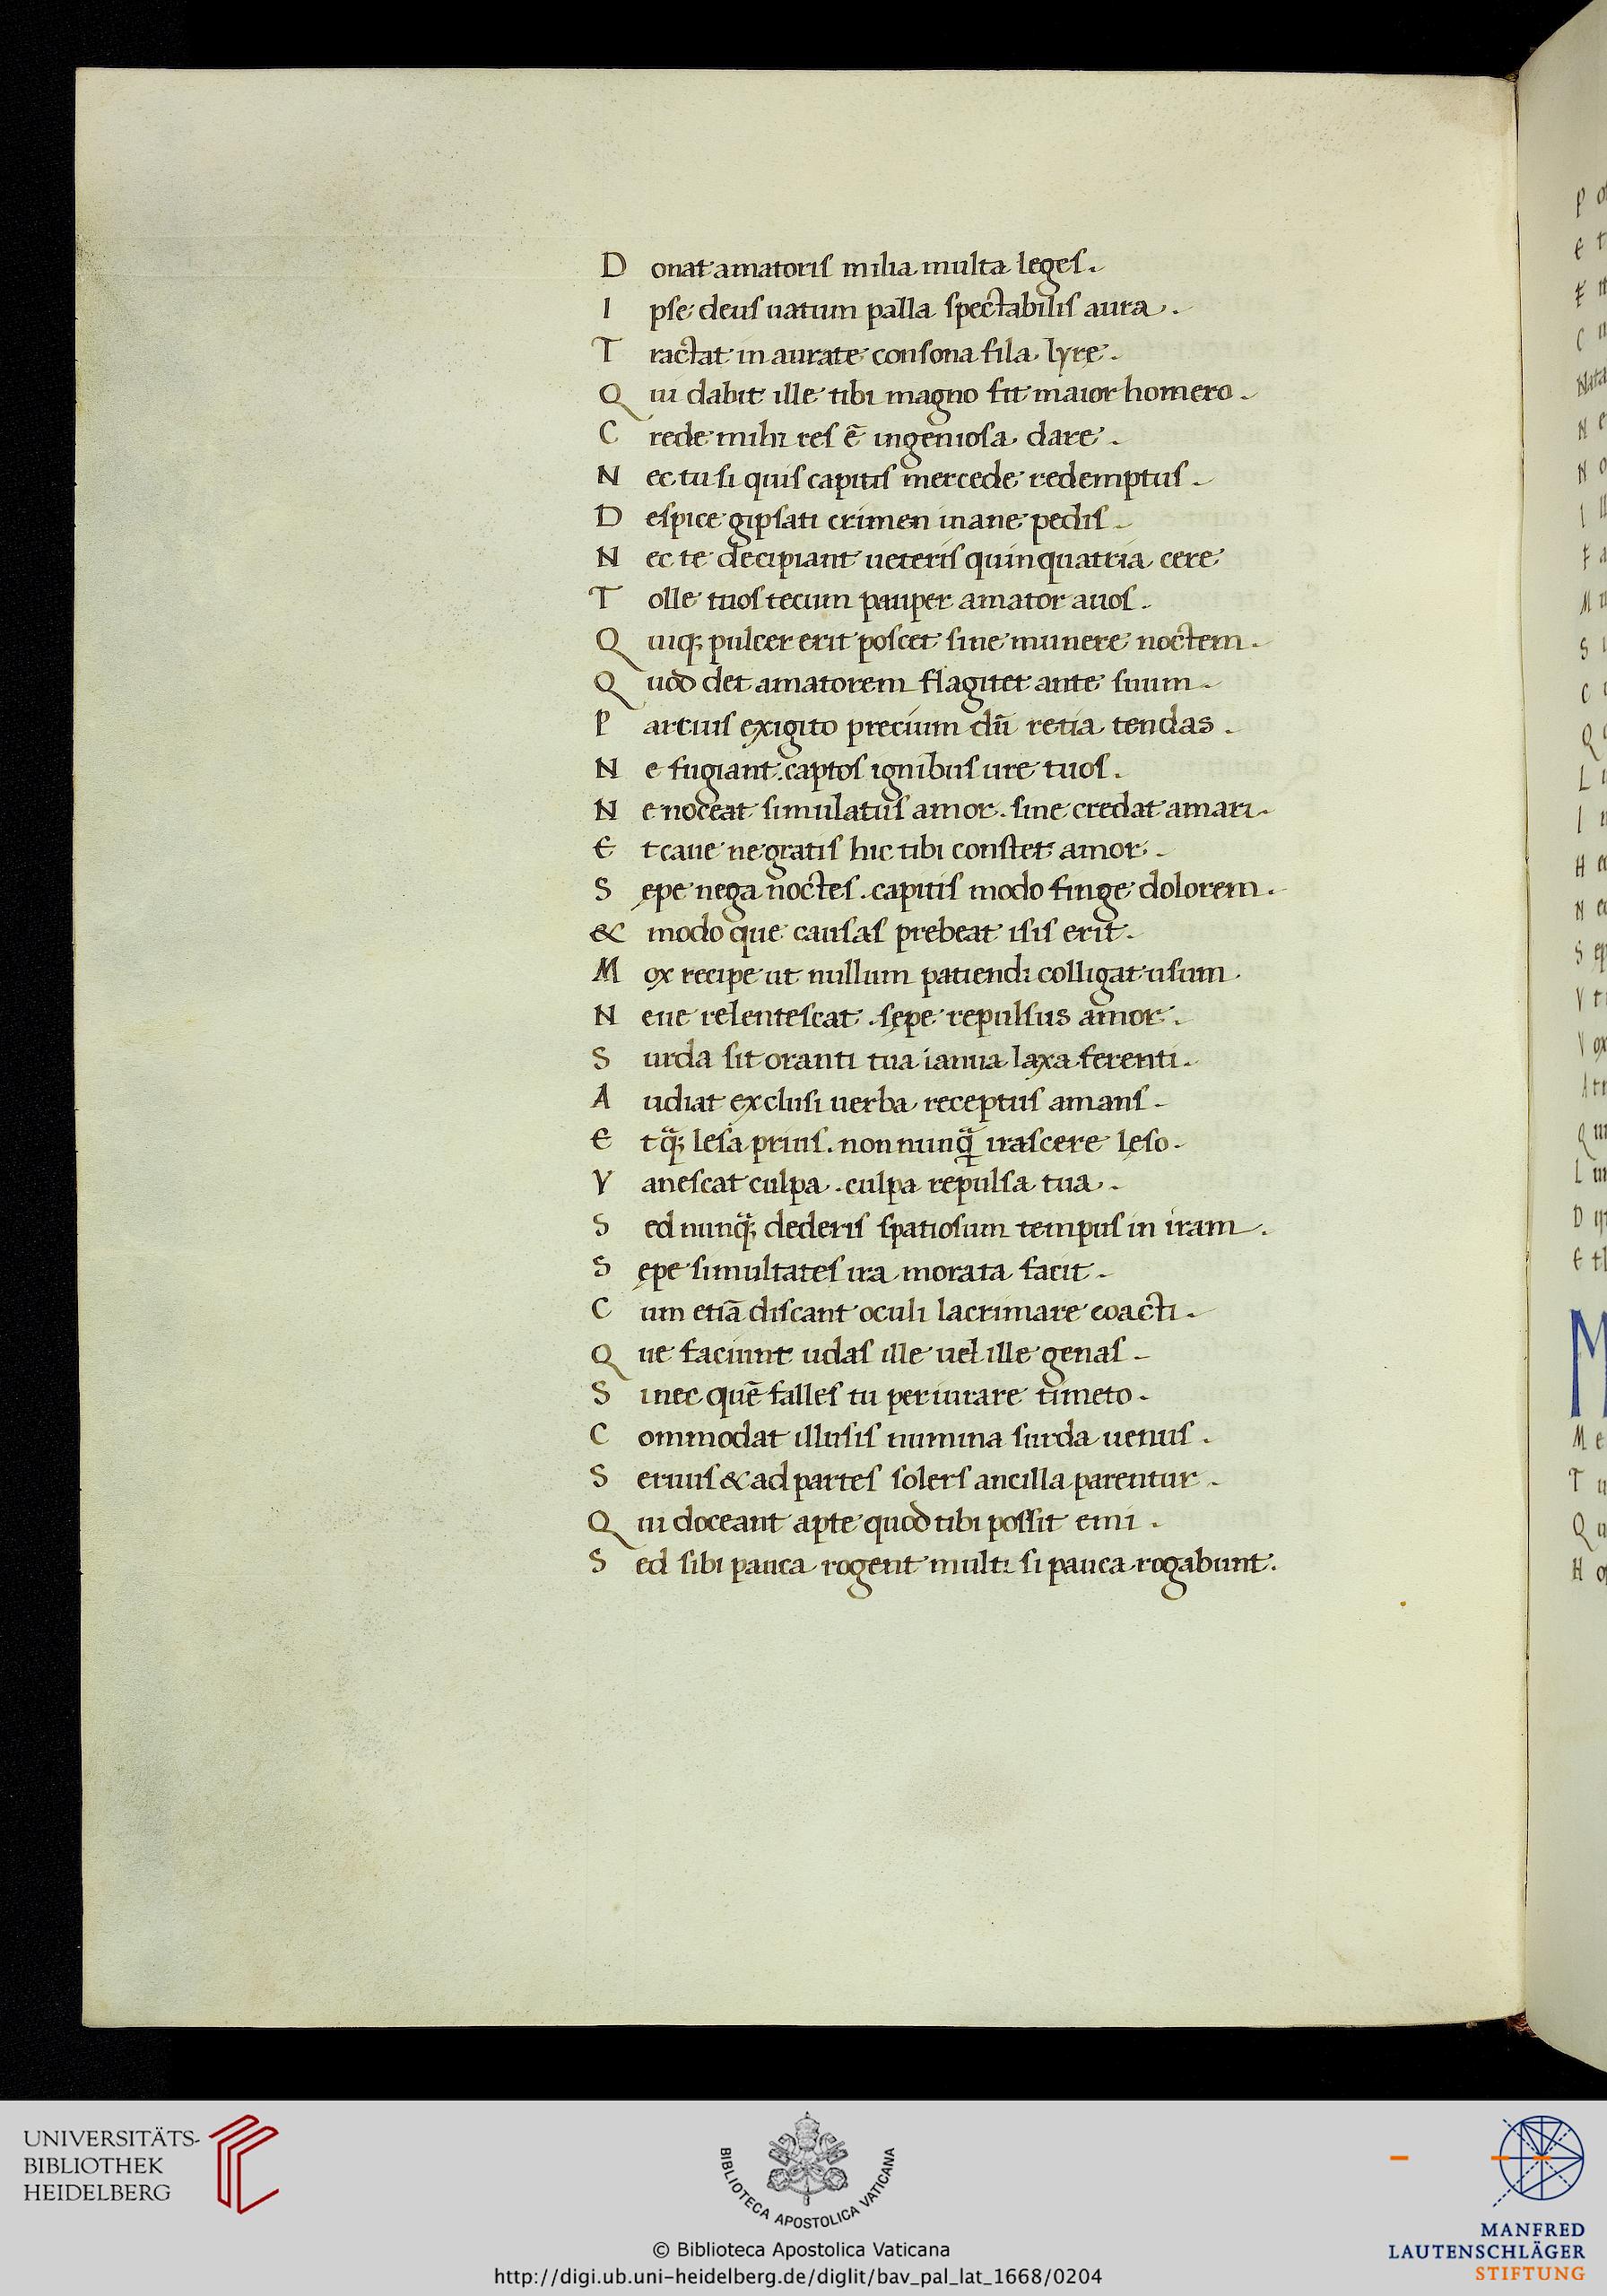 D onat amatoris milia multa leges.
I pse deus uatum palla spectabilis aura.
T ractat in aurate consona fila lyre.
Q ui dabit ille tibi magno sit maior homero.
C rede mihi res ē ingeniosa dare.
N ec tu si quis capitis mercede redemptus.
D espice gipsati crimen inane pedis.
N ec te decipiant ueteris quinquatria cere
T olle tuos tecum pauper amator auos.
Q uiq; pulcer erit poscet sine munere noctem.
Q uod det amatorem flagitet ante suum.
P arcius exigito precium dū retia tendas.
N e fugiant. captos ignibus ure tuos.
N e noceat simulatus amor. sine credat amari.
E t caue ne gratis hic tibi constet amor.
S ępe nega noctes. capitis modo finge dolorem.
& modo que causas prebeat isis erit.
M ox recipe ut nullum patiendi colligat usum.
N eue relentescat. sępe repulsus amor.
S urda sit oranti tua ianua laxa ferenti.
A udiat exclusi uerba receptus amans.
E t q̄; lesa prius. non nunq̄ irascere lęso.
V anescat culpa. culpa repulsa tua.
S ed nunq̄; dederis spatiosum tempus in iram.
S ępe simultates ira morata facit.
C um etiā discant oculi lacrimare coacti.
Q ue faciunt udas ille uel ille genas.
S i nec quē falles tu periurare timeto.
C ommodat illusis numina surda uenus.
S eruus & ad partes solers ancilla parentur.
Q ui doceant apte quod tibi possit emi.
S ed sibi pauca rogent multi si pauca rogabunt.
UNIVERSITÄTS-
BIBLIOTHEK
HEIDELBERG
BIBLIOTECA APOSTOLICA VATICANA
© Biblioteca Apostolica Vaticana
http://digi.ub.uni-heidelberg.de/diglit/bav_pal_lat_1668/0204
MANFRED
LAUTENSCHLÄGER
STIFTUNG